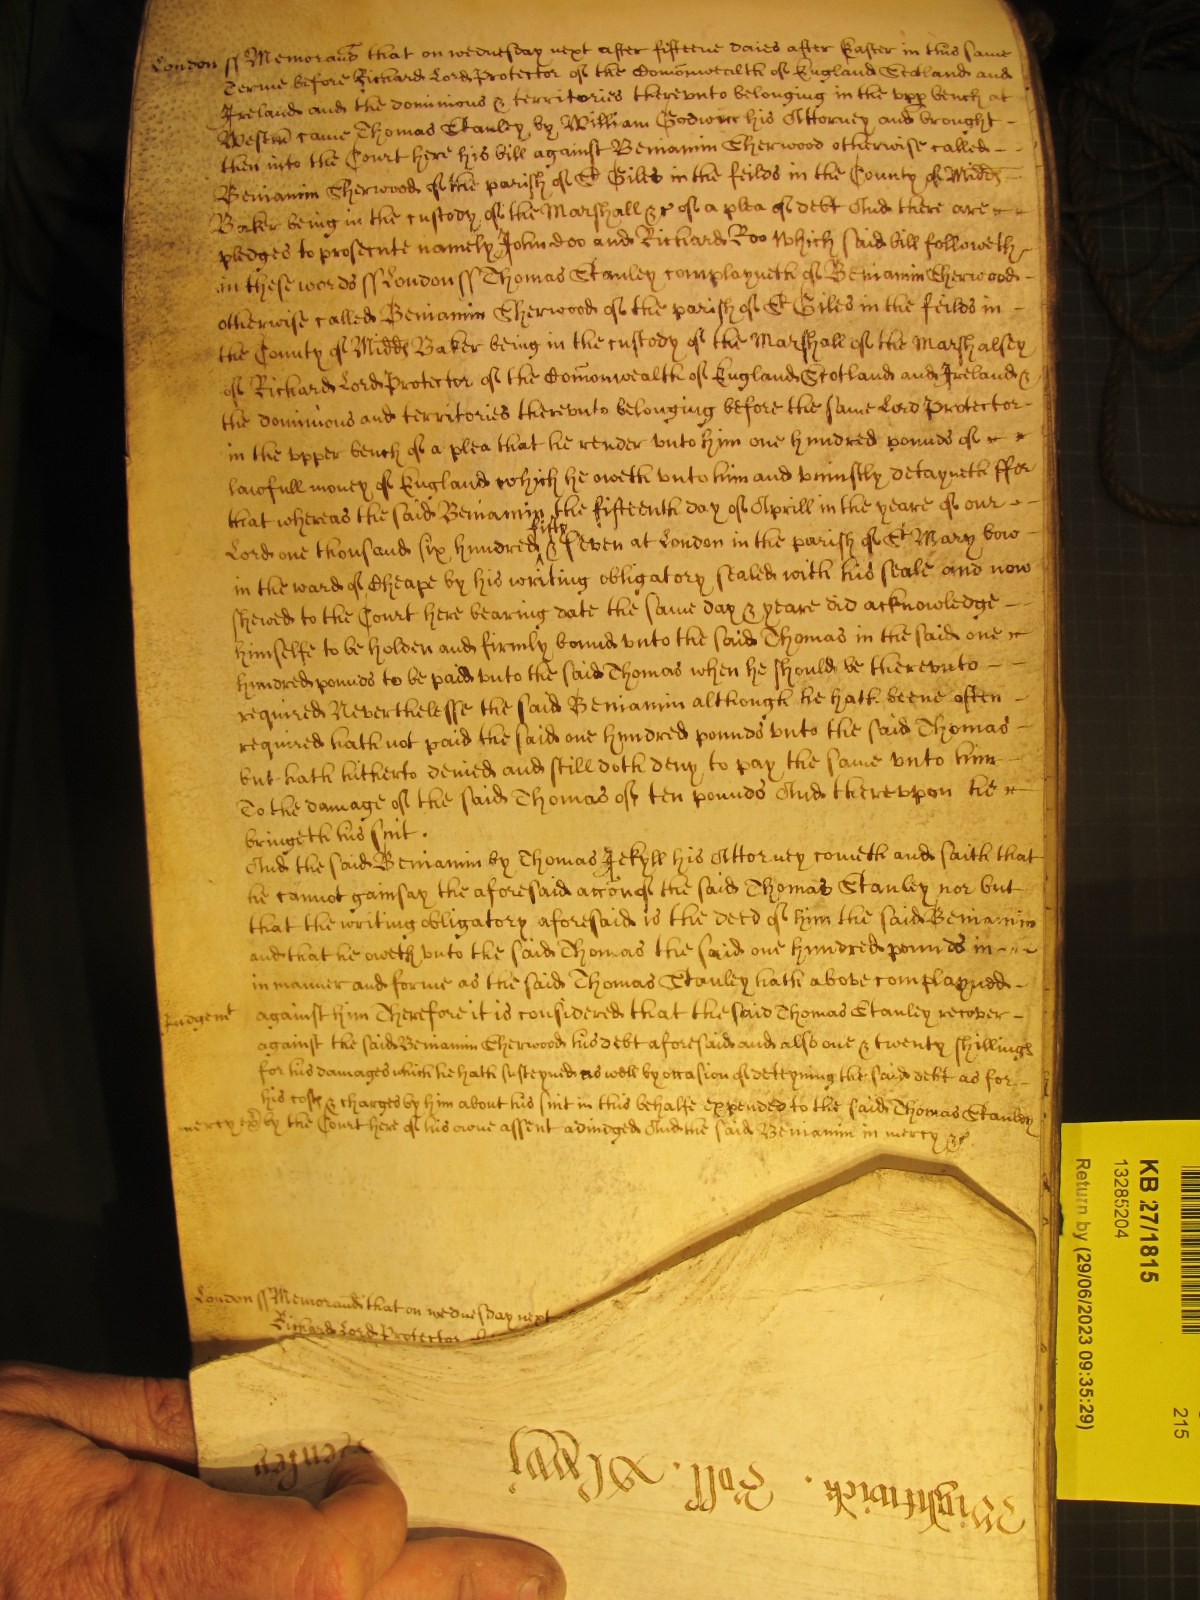 London ss Memorand that on wednesday next after fifteene daies after Easter in this same
Terme before Richard Lord Protector of the Comonwealth of England Scotland and
Ireland and the dominions & territories therevnto belonging in the vpp bench at
Westm came Thomas Stanley by William Godwin his Attorney and brought
then into the Court here his bill against Beniamin Sherwood otherwise called
Beniamin Sherwood of the parish of St Giles in the feilds in the County of Midd
Baker being in the custody of the Marshall &c of a plea of debt And there are
pledges to prosecute namely John doo and Richard Roo Which said bill followeth
in these words ss London ss Thomas Stanley complayneth of Beniamin Sherwood
otherwise called Beniamin Sherwood of the parish of St Giles in the feilds in
the County of Midd Baker being in the custody of the Marshall of the Marshalsey
of Richard Lord Protector of the Comonwealth of England Scotland and Ireland &
the dominions and territories therevnto belonging before the same Lord Protector
in the vpper bench of a plea that he render vnto him one hundred pounds of
lawfull money of England which he oweth vnto him and vniustly detayneth ffor
that whereas the said Beniamin the fifteenth day of Aprill in the yeare of our
Lord one thousand six hundred fifty & seven at London in the parish of St Mary bow
in the ward of Cheape by his writing obligatory sealed with his seale and now
shewed to the Court here bearing date the same day & yeare did acknowledge
himselfe to be holden and firmly bound vnto the said Thomas in the said one
hundred pounds to be paid vnto the said Thomas when he should be therevnto
required Neverthelesse the said Beniamin although he hath beene often
required hath not paid the said one hundred pounds vnto the said Thomas
but hath hitherto denied and still doth deny to pay the same vnto him
To the damage of the said Thomas of ten pounds And therevpon he
bringeth his suit.
And the said Beniamin by Thomas Jekyll his Attorney cometh and saith that
he cannot gainsay the aforesaid accon of the said Thomas Stanley nor but
that the writing obligatory aforesaid is the deed of him the said Beniamin
and that he oweth vnto the said Thomas the said one hundred pounds in
in manner and forme as the said Thomas Stanley hath above complayned
Judgemt against him Therefore it is considered that the said Thomas Stanley recover
against the said Beniamin Sherwood his debt aforesaid and also one & twenty shillings
for his damages which he hath susteyned as well by occasion of deteyning the said debt as for
his costs & charges by him about his suit in this behalfe expended to the said Thomas Stanley
mercy by the Court here of his owne assent adiudged And the said Beniamin in mercy &c.
London ss Memorand that on wednesday next
Richard Lord Protector
Wightwick. Roll.
KB 27/1815
13285204
Return by (29/06/2023 09:35:29)
215